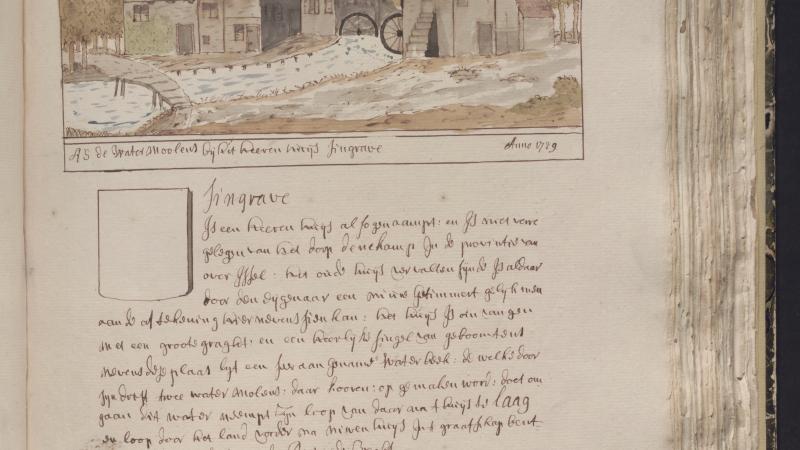 AS de Water Moolens bij het heeren huijs Singrave Anno 1729
Singrave
Is een heeren huijs alsogenaampt: en Is niet verre
gelegen van het dorp denekamp In de provintie van
over Issel: het oude huijs vervallen sijnde Is aldaar
door den Eijgenaar een nieuw getimmert gelijk men
aan de aftekening hier nevens sien kan: het huijs Is omvangen
met een groote graght: en een heerlijke singel van geboomtens
nevens deze plaat lijt een seer aangename Water beek: de welke door
twee water molens: daar kooren: op gemalen word: doet om
gaan dit water neempt sijn loop van daar na t huijs te Laag
en loop door het land verder na niewen huijs In t graafschap bent